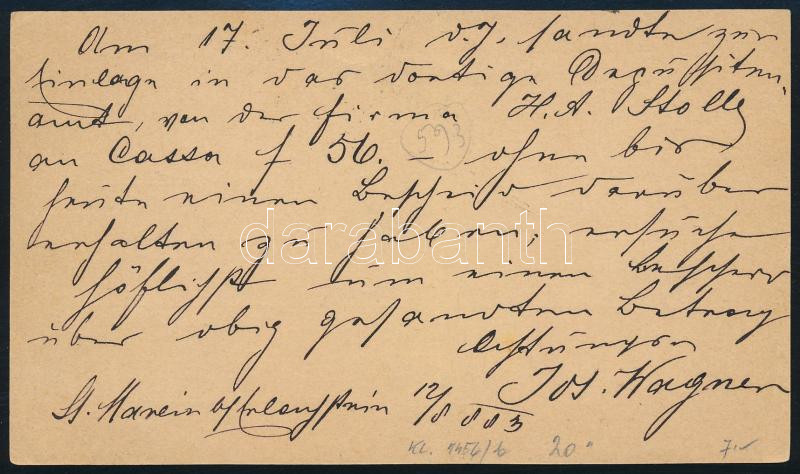 Am 17. Juli d. J. sandte zur
Einlage in das dortige Depositen-
amt, von der Firma H. A. Stolle
an Cassa f 56. – ohne bis
heute einen Bescheid darüber
erhalten zu haben, ersuche
höflichst um einen Bescheid
über obig gesandten Betrag
Achtungsv
Jos. Wagner
St. Marein 12/8 883
593
darabanth
KL. 20" 7.-